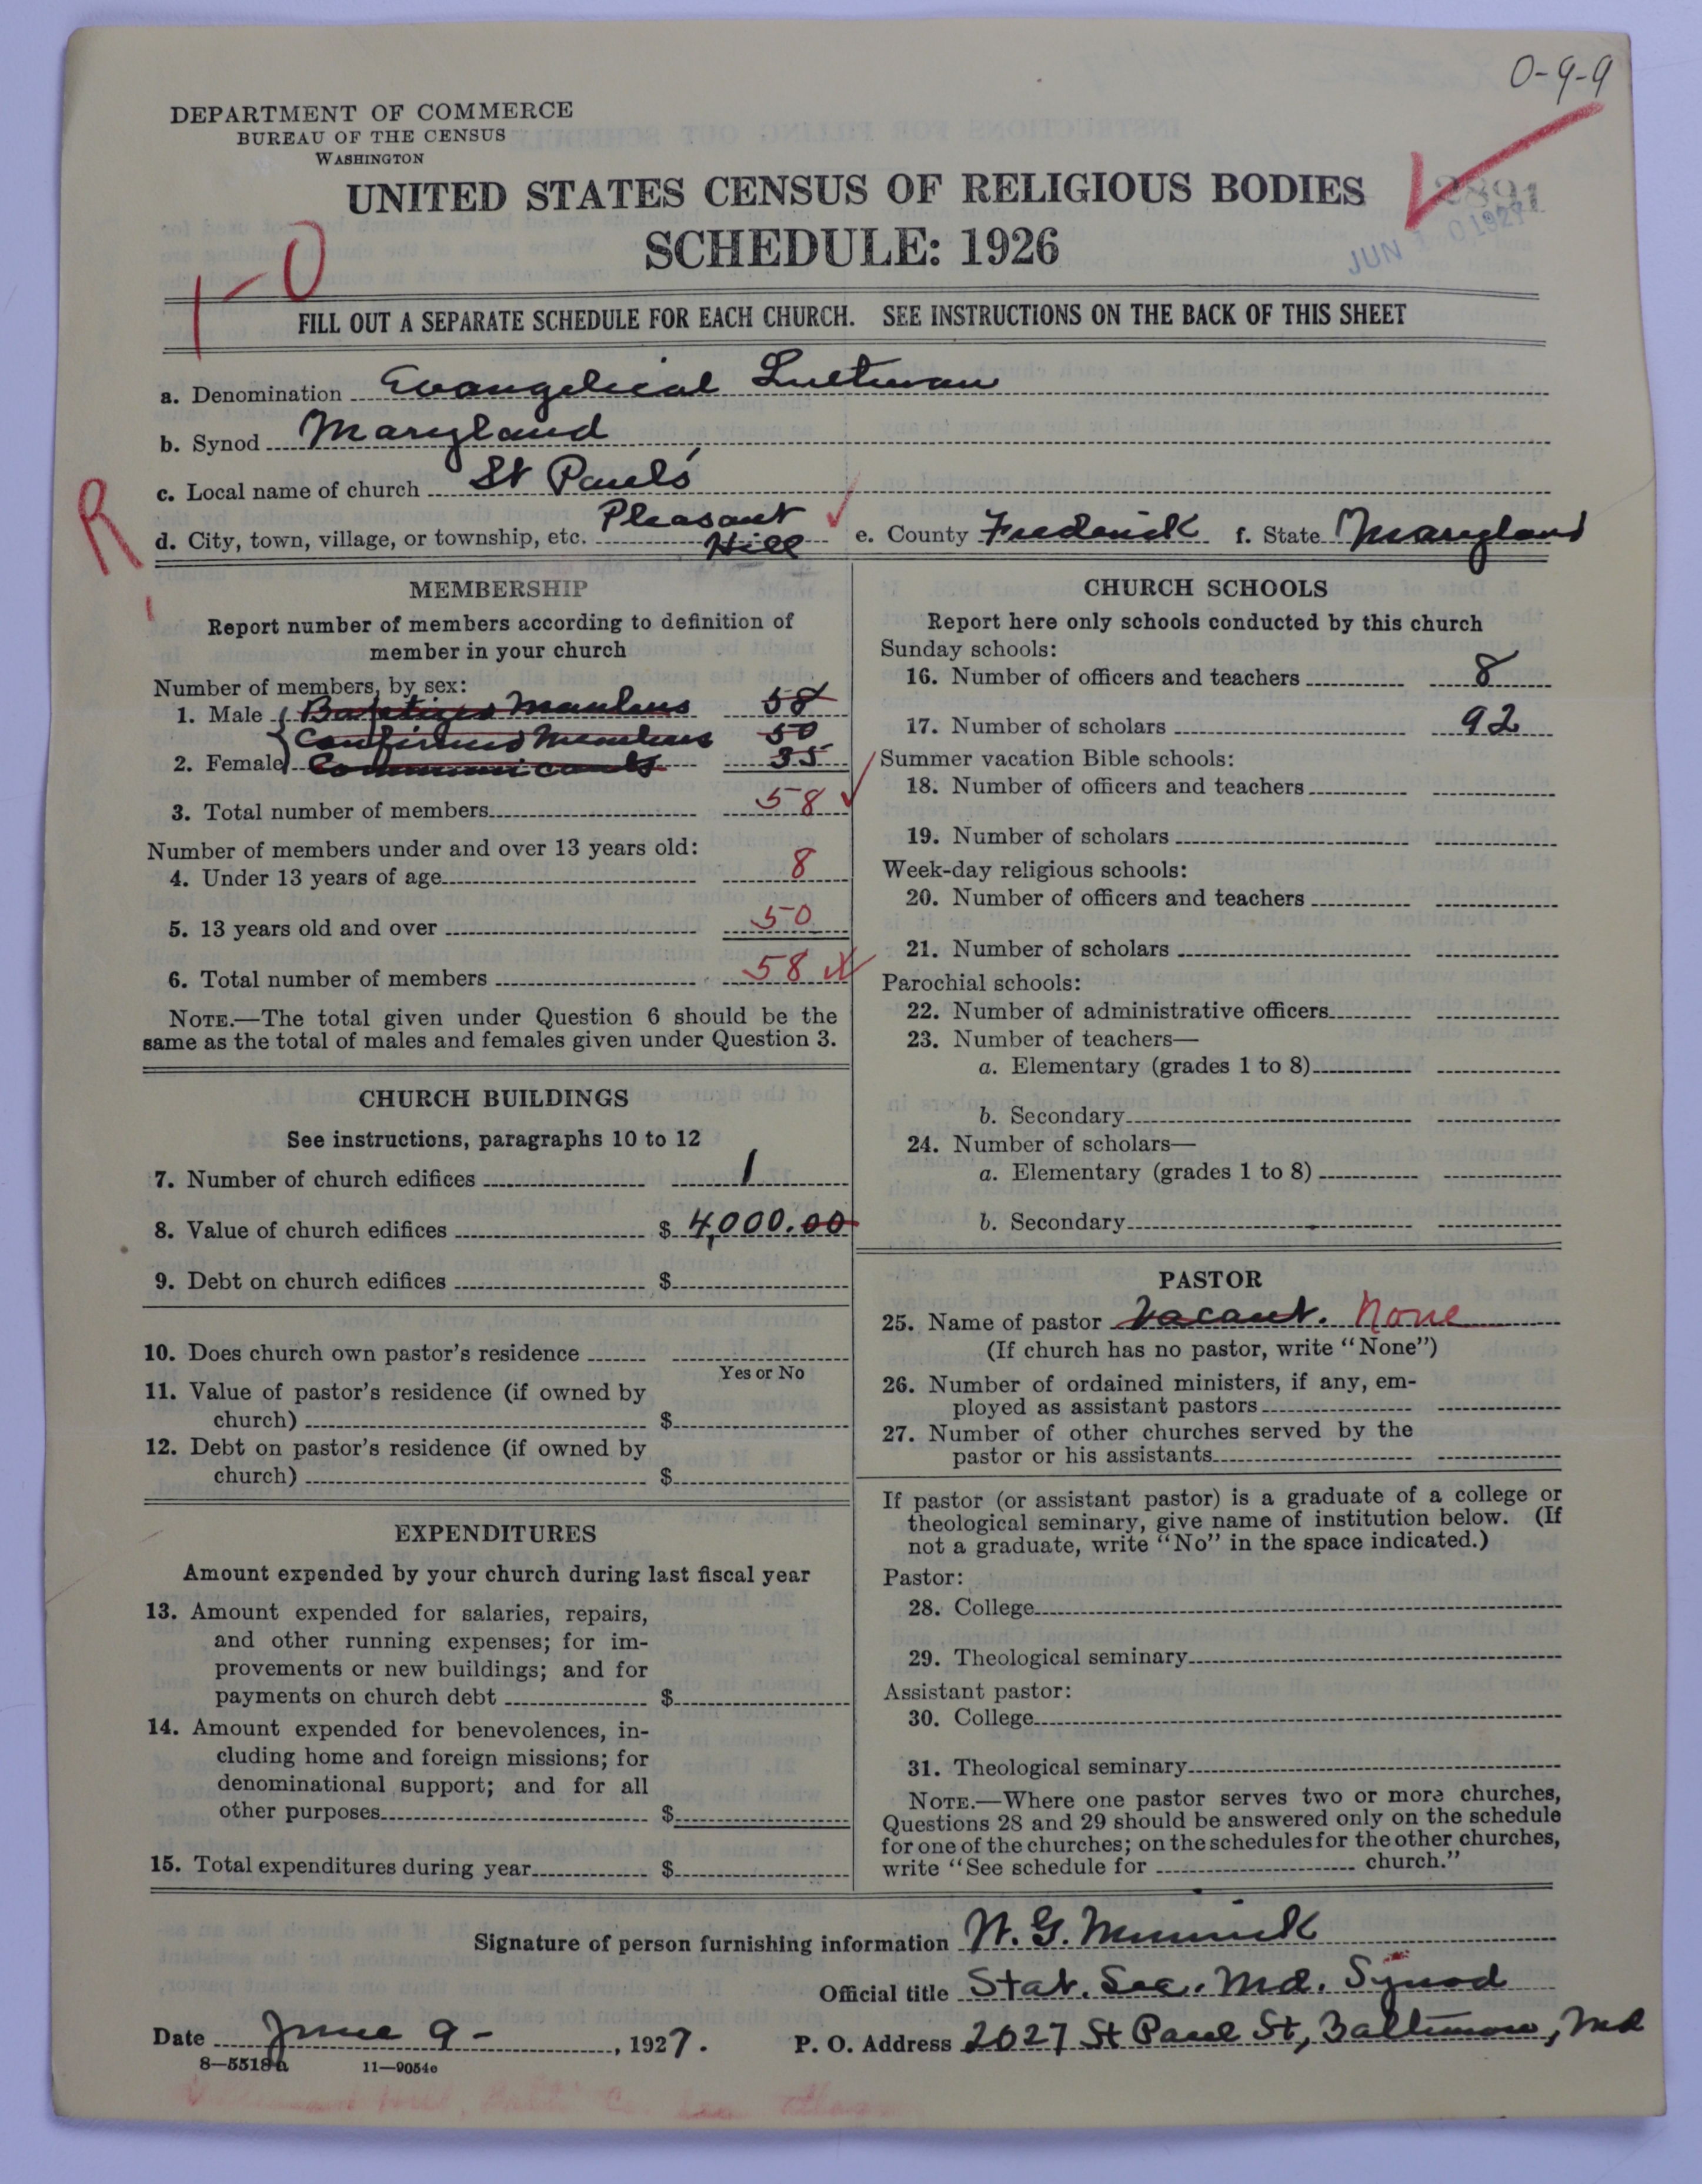 0-9-9
DEPARTMENT OF COMMERCE
BUREAU OF THE CENSUS
WASHINGTON
UNITED STATES CENSUS OF RELIGIOUS BODIES
SCHEDULE: 1926
JUN 1927
1-0
FILL OUT A SEPARATE SCHEDULE FOR EACH CHURCH. SEE INSTRUCTIONS ON THE BACK OF THIS SHEET
a. Denomination Evangelical Lutheran
b. Synod Maryland
c. Local name of church St Paul's
R
d. City, town, village, or township, etc. Pleasant Hill e. County Frederick f. State Maryland
MEMBERSHIP
Report number of members according to definition of
member in your church
Number of members, by sex:
1. Male Baptized Members 58
Confirmed Members 50
2. Female Communicants 35
3. Total number of members 58
Number of members under and over 13 years old:
4. Under 13 years of age 8
5. 13 years old and over 50
6. Total number of members 58
NOTE.—The total given under Question 6 should be the
same as the total of males and females given under Question 3.
CHURCH BUILDINGS
See instructions, paragraphs 10 to 12
7. Number of church edifices 1
8. Value of church edifices $ 4,000.00
9. Debt on church edifices $
10. Does church own pastor's residence
Yes or No
11. Value of pastor's residence (if owned by
church) $
12. Debt on pastor's residence (if owned by
church) $
EXPENDITURES
Amount expended by your church during last fiscal year
13. Amount expended for salaries, repairs,
and other running expenses; for im-
provements or new buildings; and for
payments on church debt $
14. Amount expended for benevolences, in-
cluding home and foreign missions; for
denominational support; and for all
other purposes $
15. Total expenditures during year $
CHURCH SCHOOLS
Report here only schools conducted by this church
Sunday schools:
16. Number of officers and teachers 8
17. Number of scholars 92
Summer vacation Bible schools:
18. Number of officers and teachers
19. Number of scholars
Week-day religious schools:
20. Number of officers and teachers
21. Number of scholars
Parochial schools:
22. Number of administrative officers
23. Number of teachers—
a. Elementary (grades 1 to 8)
b. Secondary
24. Number of scholars—
a. Elementary (grades 1 to 8)
b. Secondary
PASTOR
25. Name of pastor Vacant. None
(If church has no pastor, write "None")
26. Number of ordained ministers, if any, em-
ployed as assistant pastors
27. Number of other churches served by the
pastor or his assistants
If pastor (or assistant pastor) is a graduate of a college or
theological seminary, give name of institution below. (If
not a graduate, write "No" in the space indicated.)
Pastor:
28. College
29. Theological seminary
Assistant pastor:
30. College
31. Theological seminary
NOTE.—Where one pastor serves two or more churches,
Questions 28 and 29 should be answered only on the schedule
for one of the churches; on the schedules for the other churches,
write "See schedule for church."
Signature of person furnishing information W. G. Minnick
Official title Stat. Sec. Md. Synod
Date June 9 - , 1927. P. O. Address 2027 St Paul St, Baltimore, Md
8—5518a 11—9054c